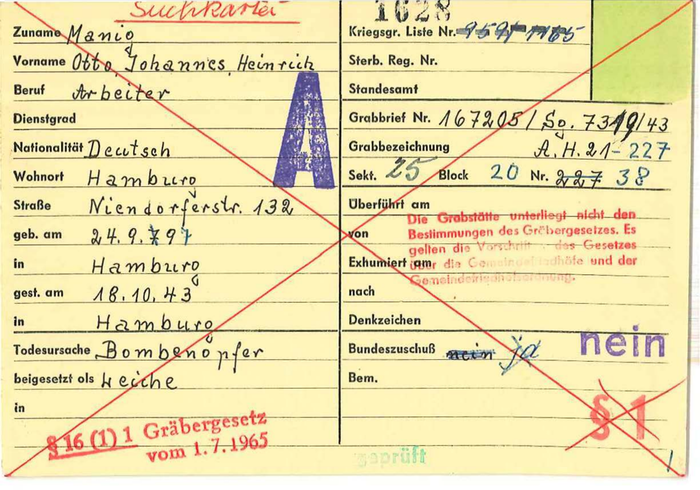 Suchkartei
Zuname Manig
Vorname Otto, Johannes, Heinrich
Beruf Arbeiter
Dienstgrad
Nationalität Deutsch
Wohnort Hamburg
Straße Niendorferstr. 132
geb. am 24.9.797
in Hamburg
gest. am 18.10.43
in Hamburg
Todesursache Bombenopfer
beigesetzt als Leiche
in
§ 16 (1) 1 Gräbergesetz
vom 1.7.1965
A
1628
Kriegsgr. Liste Nr.
Sterb. Reg. Nr.
Standesamt
Grabbrief Nr. 167205/So. 7319/43
Grabbezeichnung A.H.21-227
Sekt. 25 Block 20 Nr. 227 38
Überführt am
Die Grabstätte unterliegt nicht den
von Bestimmungen des Gräbergesetzes. Es
gelten die Vorschrift des Gesetzes
Exhumiert am über die Gemeindefriedhöfe und der
Gemeindefriedhofsordnung.
nach
Denkzeichen
nein
Bundeszuschuß nein ja
Bem.
§ 1
geprüft